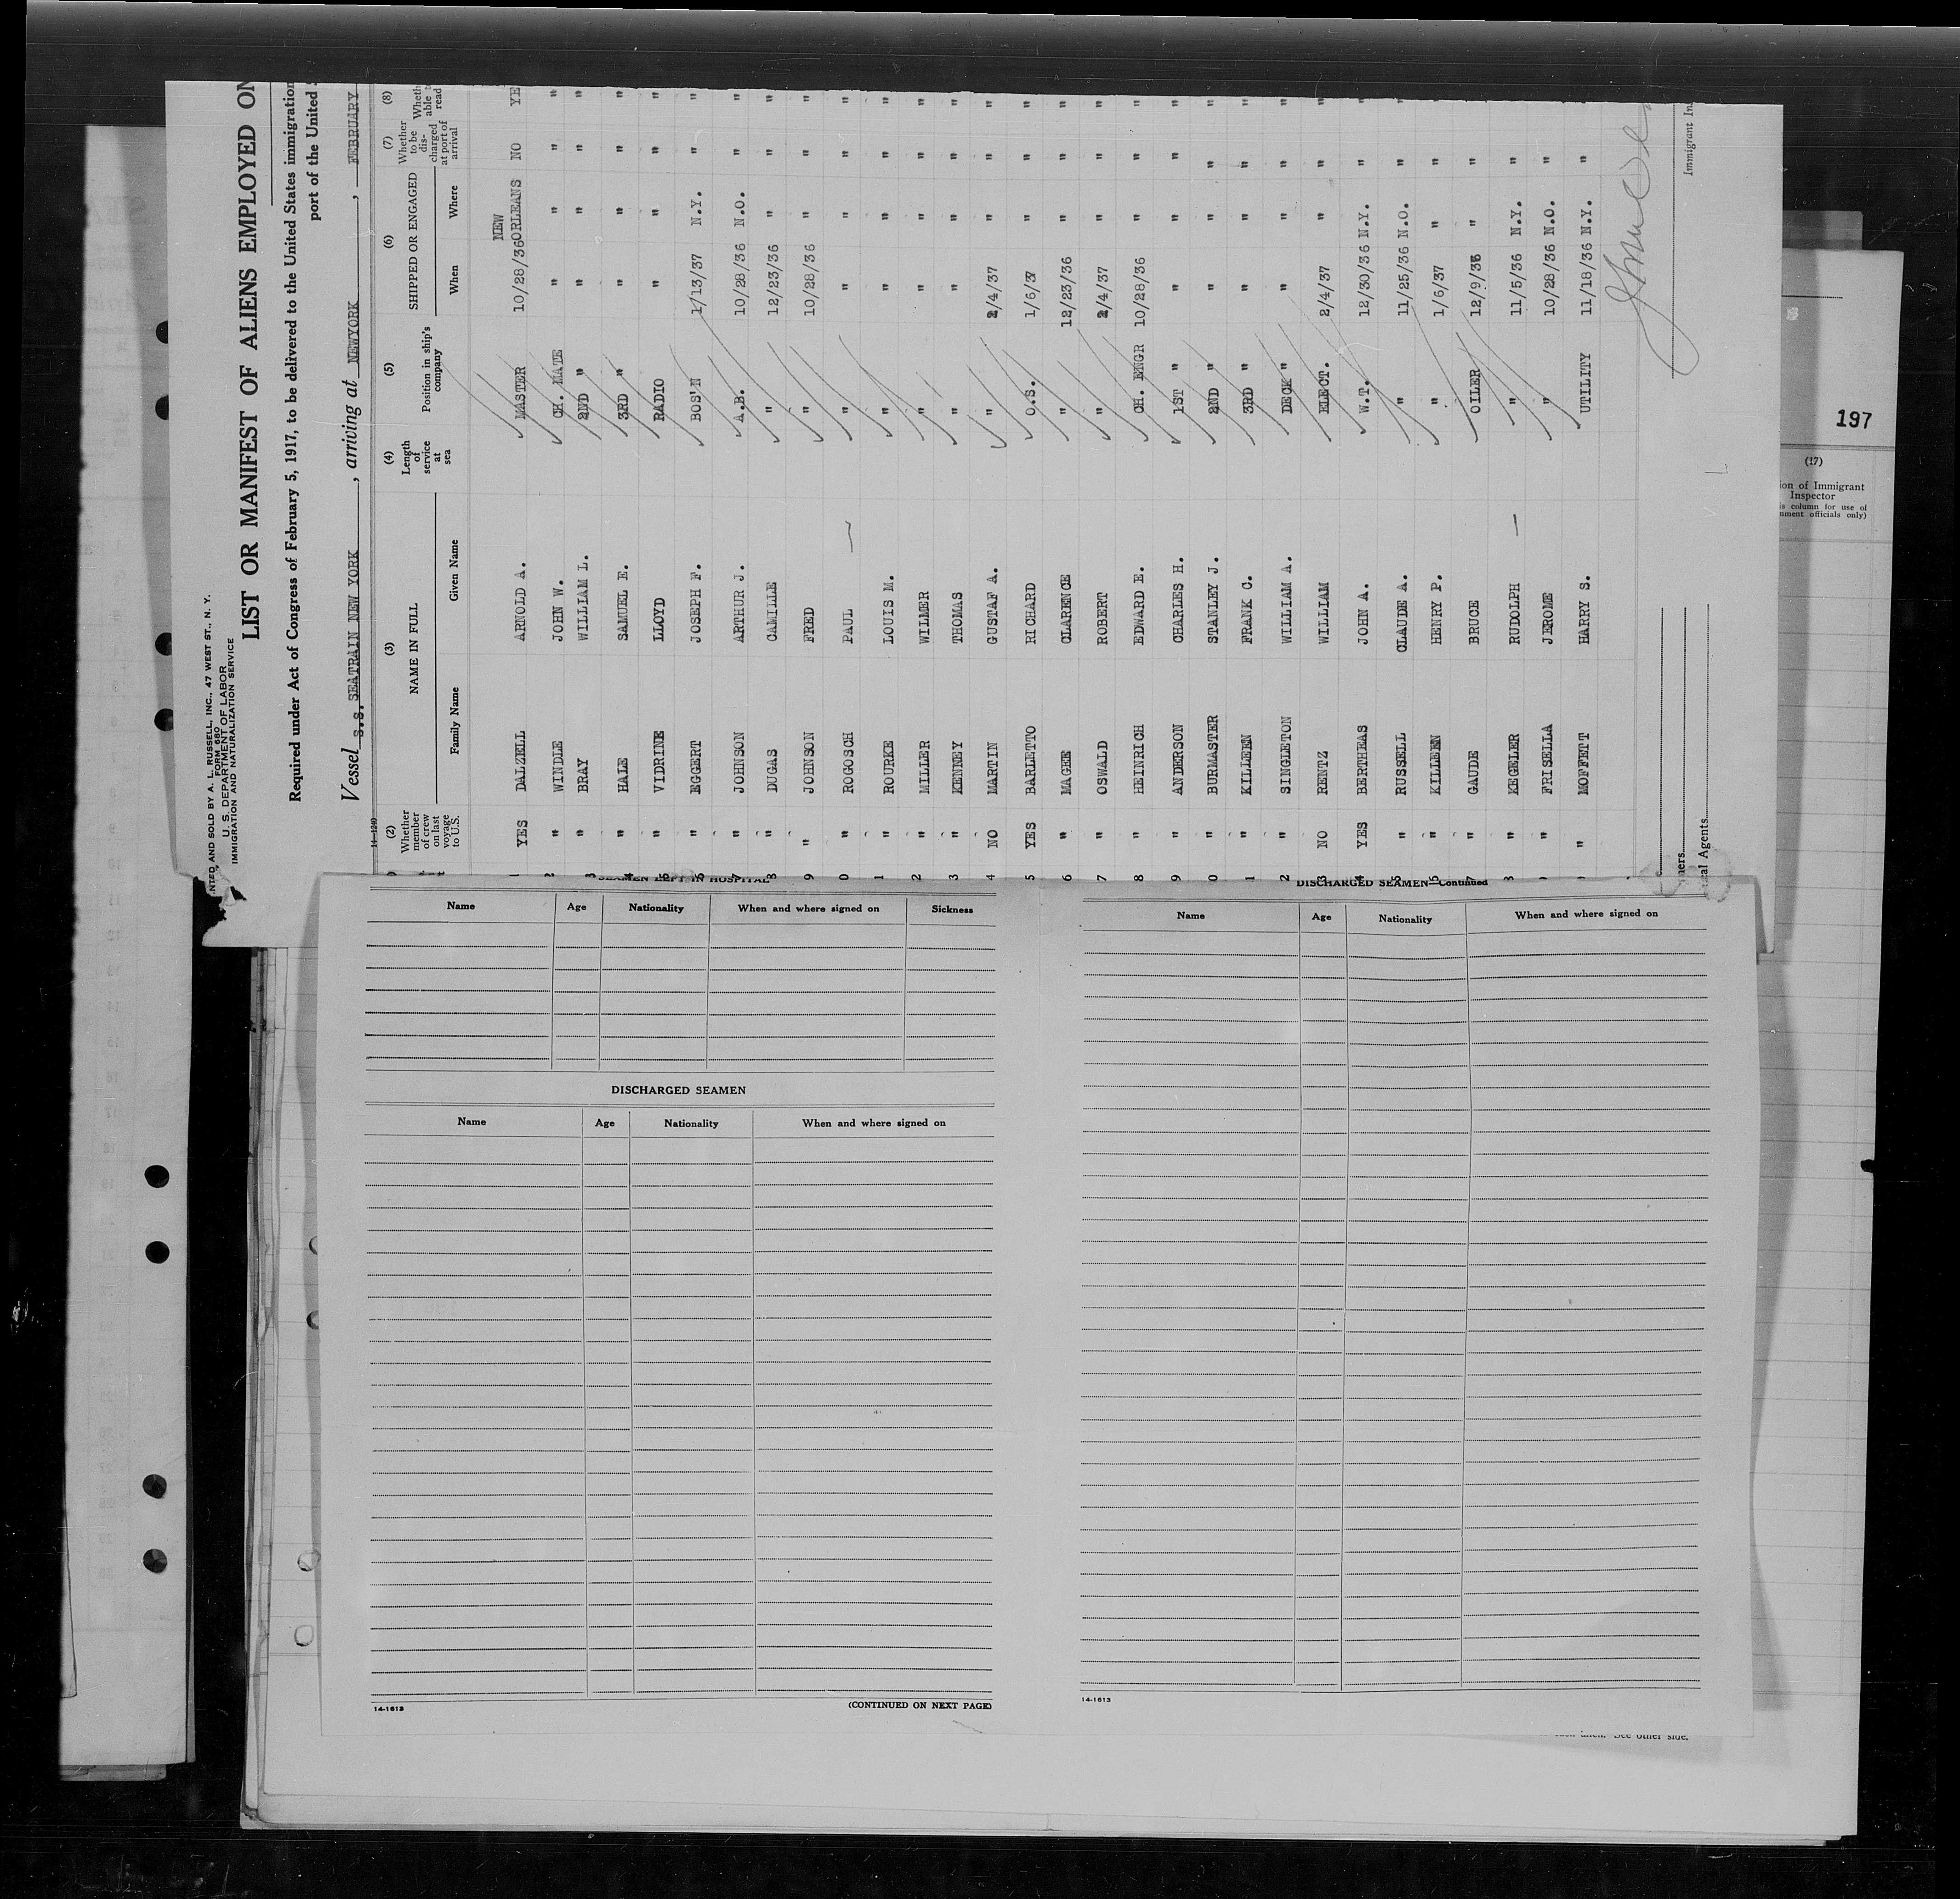 NTED AND SOLD BY A. L. RUSSELL, INC., 47 WEST ST., N. Y.
FORM 680
U. S. DEPARTMENT OF LABOR
IMMIGRATION AND NATURALIZATION SERVICE
LIST OR MANIFEST OF ALIENS EMPLOYED ON
Required under Act of Congress of February 5, 1917, to be delivered to the United States immigration
port of the United
Vessel S.S. SEATRAIN NEW YORK, arriving at NEWYORK, FEBRUARY
14-1240
(2) Whether member of crew on last voyage to U.S. (3) NAME IN FULL Family Name Given Name (4) Length of service at sea (5) Position in ship's company (6) SHIPPED OR ENGAGED When Where (7) Whether to be discharged at port of arrival (8) Wheth able t read
1 YES DALZELL ARNOLD A. MASTER 10/28/36 NEW ORLEANS NO YE
2 " WINDLE JOHN W. CH. MATE " " " "
3 " BRAY WILLIAM L. 2ND " " " " "
4 " HALE SAMUEL E. 3RD " " " " "
" VIDRINE LLOYD RADIO " " " "
" EGGERT JOSEPH F. BOS'N 1/13/37 N.Y. " "
7 " JOHNSON ARTHUR J. A.B. 10/28/36 N.O. " "
8 " DUGAS CAMILLE " 12/23/36 " " "
9 " JOHNSON FRED " 10/28/36 " " "
0 " ROGOSCH PAUL " " " " "
1 " ROURKE LOUIS M. " " " " "
2 " MILLER WILMER " " " " "
3 " KENNEY THOMAS " " " " "
4 NO MARTIN GUSTAF A. " 2/4/37 " " "
5 YES BARLETTO RICHARD O.S. 1/6/37 " " "
6 " MAGEE CLARENCE " 12/23/36 " " "
7 " OSWALD ROBERT " 2/4/37 " " "
8 " HEINRICH EDWARD E. CH. ENGR 10/28/36 " " "
9 " ANDERSON CHARLES H. 1ST " " " " "
0 " BURMASTER STANLEY J. 2ND " " " " "
1 " KILLEEN FRANK C. 3RD " " " " "
2 " SINGLETON WILLIAM A. DECK " " " " "
3 NO RENTZ WILLIAM ELECT. 2/4/37 " " "
4 YES BERTHEAS JOHN A. W.T. 12/30/36 N.Y. " "
5 " RUSSELL CLAUDE A. " 11/25/36 N.O. " "
" KILLEEN HENRY P. " 1/6/37 " " "
7 " GAUDE BRUCE OILER 12/9/36 " " "
" KEGELER RUDOLPH " 11/5/36 N.Y. " "
" FRISELLA JEROME " 10/28/36 N.O. " "
" MOFFETT HARRY S. UTILITY 11/18/36 N.Y. " "
Immigrant In
ners
al Agents
197
(17)
ion of Immigrant
Inspector
is column for use of
nment officials only)
SEAMEN LEFT IN HOSPITAL
Name Age Nationality When and where signed on Sickness
DISCHARGED SEAMEN
Name Age Nationality When and where signed on
14-1613
(CONTINUED ON NEXT PAGE)
DISCHARGED SEAMEN—Continued
Name Age Nationality When and where signed on
14-1613
See other side.